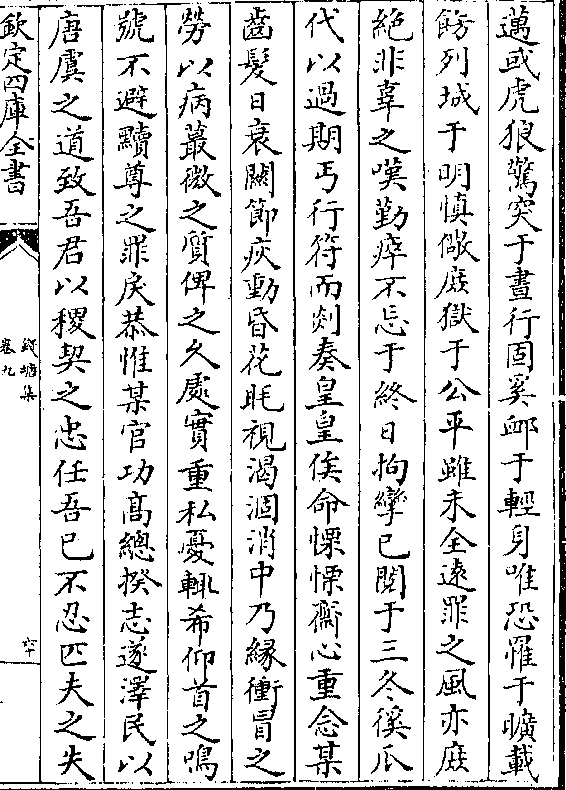 邁或虎狼驚突于晝行固奚䘏于輕身唯恐罹于曠載
飭列城于明慎儆庭獄于公平雖未全遠罪之風亦庭
絶非辜之嘆勤瘁不忘于終日拘攣已閲于三冬徯瓜
代以過期丐行符而剡奏皇皇俟命慄慄齋心重念某
齒髮日衰關節疾動昏花眊視渇涸消中乃緣衝冒之
勞以病蕞微之質俾之久處實重私憂輒希仰首之鳴
號不避黷尊之罪戾恭惟某官功髙總揆志遂澤民以
唐虞之道致吾君以稷契之忠任吾已不忍匹夫之失
欽定四庫全書
錢塘集
卷九